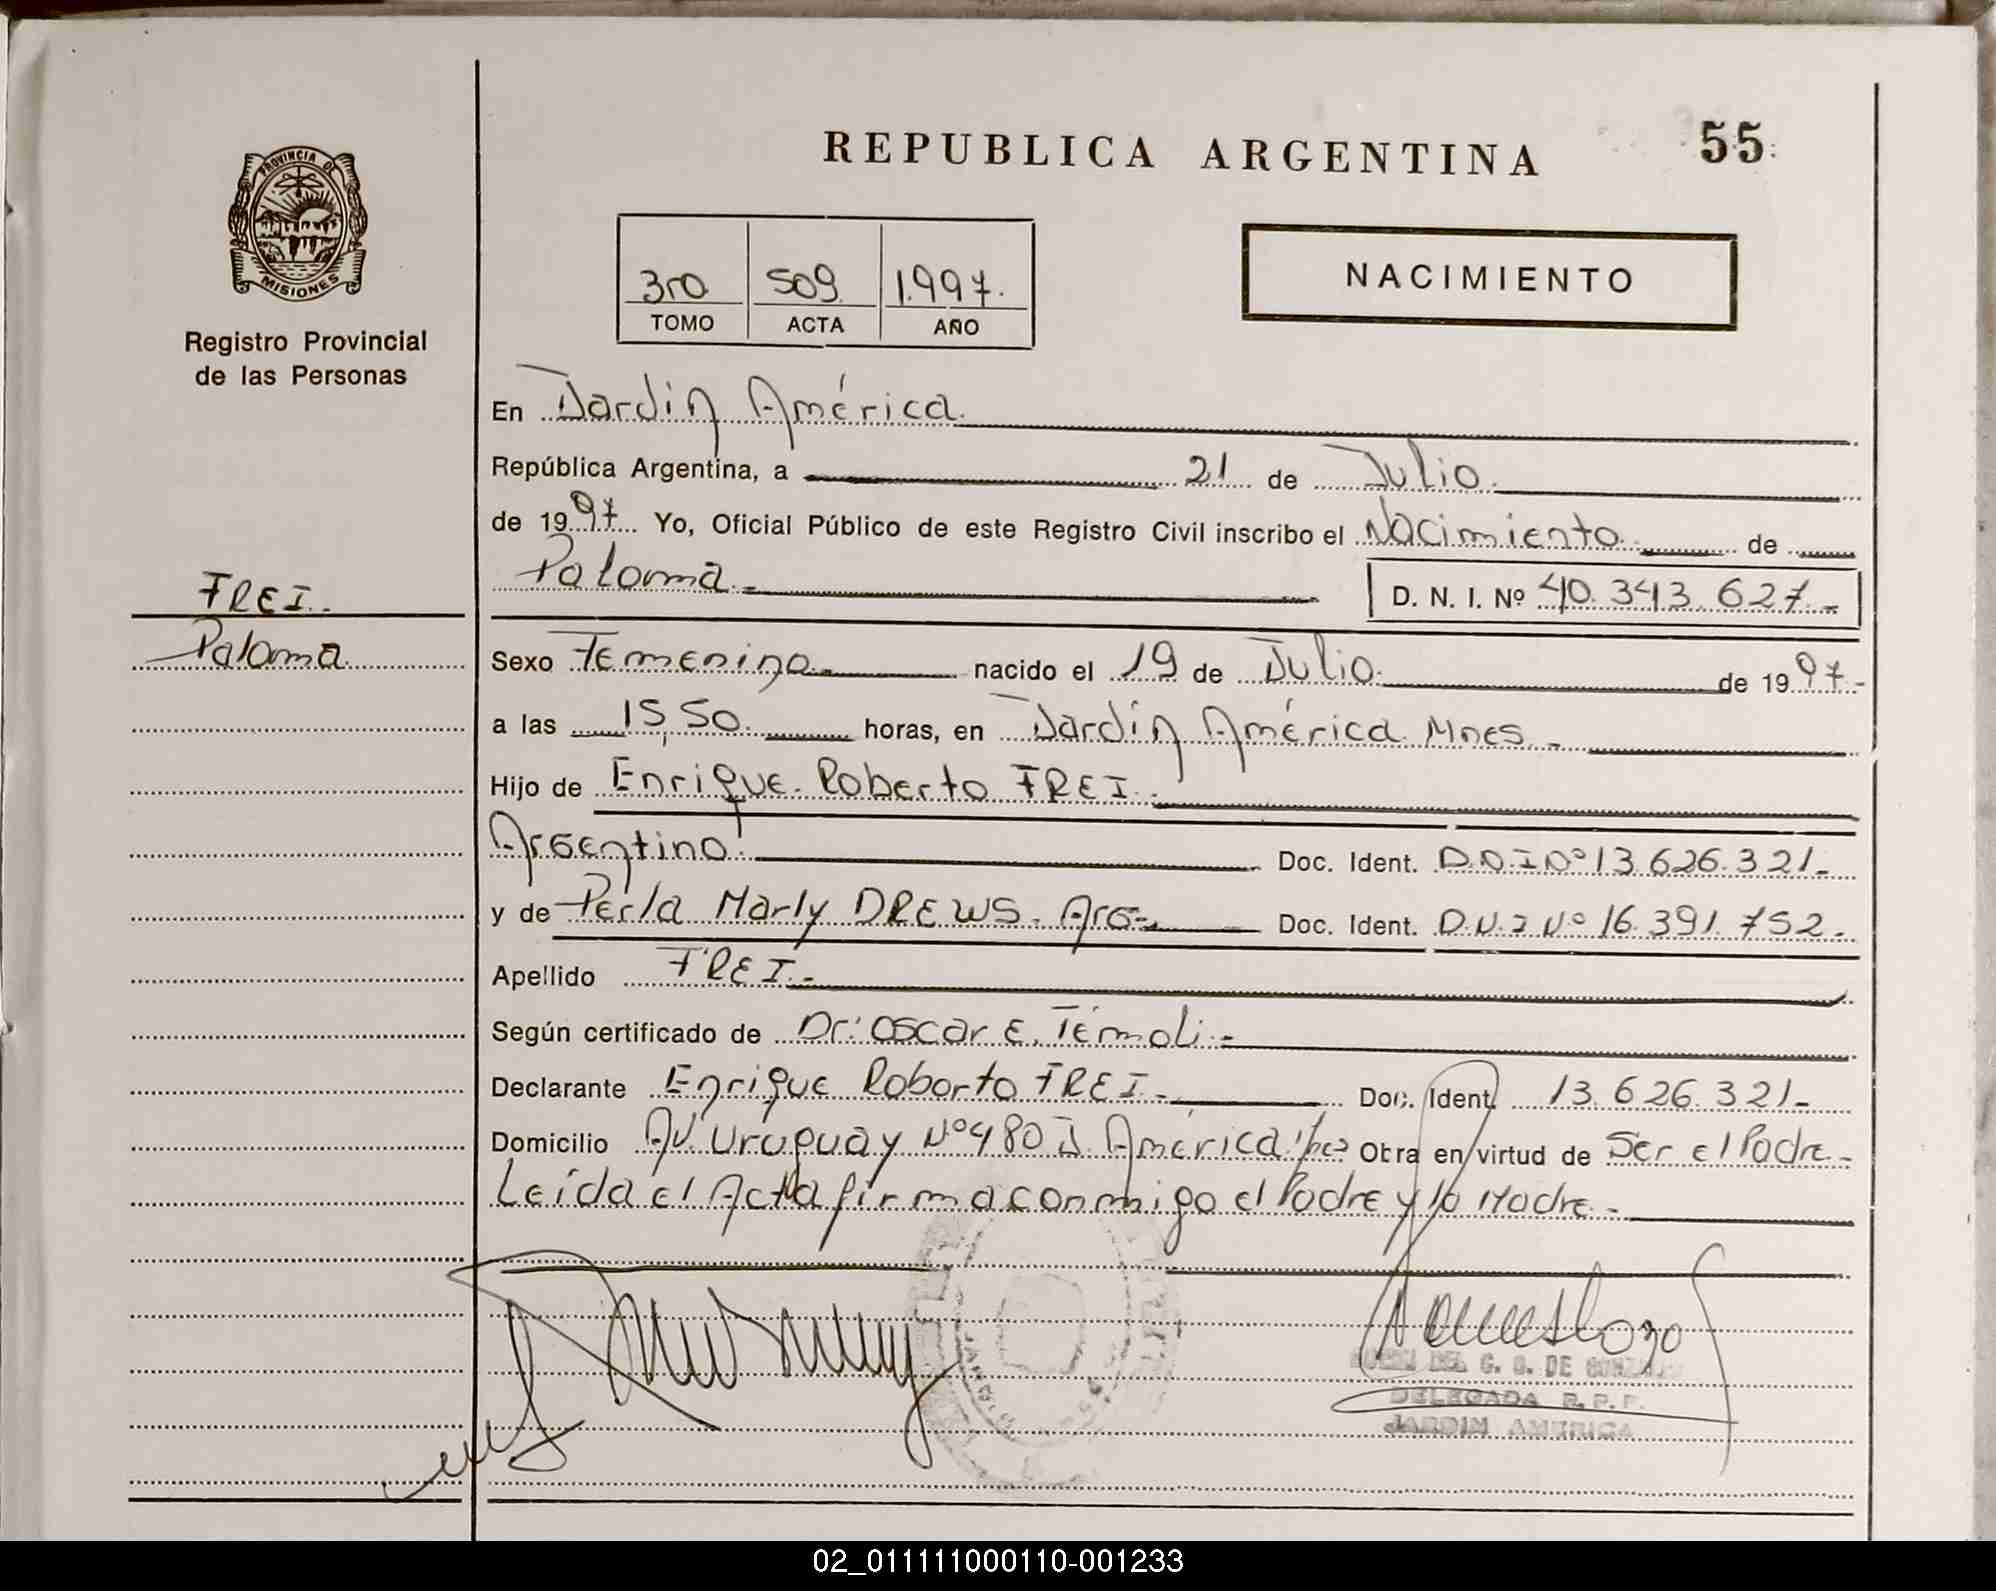 REPUBLICA ARGENTINA
55
PROVINCIA DE
MISIONES
Registro Provincial
de las Personas
3ro 509 1.997.
TOMO ACTA AÑO
NACIMIENTO
En Jardín América.
República Argentina, a 21 de Julio.
de 1997 Yo, Oficial Público de este Registro Civil inscribo el Nacimiento de
Paloma.-
D. N. I. Nº 40.343.627.-
FREI.-
Paloma
Sexo Femenino.- nacido el 19 de Julio. de 1997.-
a las 15,50. horas, en Jardín América. Mnes.-
Hijo de Enrique Roberto FREI.-
Argentino. Doc. Ident. D.N.I Nº 13.626.321.-
y de Perla Marly DREWS. Arg.- Doc. Ident. D.N.I Nº 16.391.752.-
Apellido FREI.-
Según certificado de Dr: Oscar E. Témoli.-
Declarante Enrique Roberto FREI.- Doc. Ident. 13.626.321.-
Domicilio AV. Uruguay Nº 480 J. América Obra en virtud de Ser el Padre.-
Leída el Acta firma conmigo el Padre y la Madre.-
G. G. DE
DELEGADA R. P. P.
JARDIN AMERICA
02_011111000110-001233